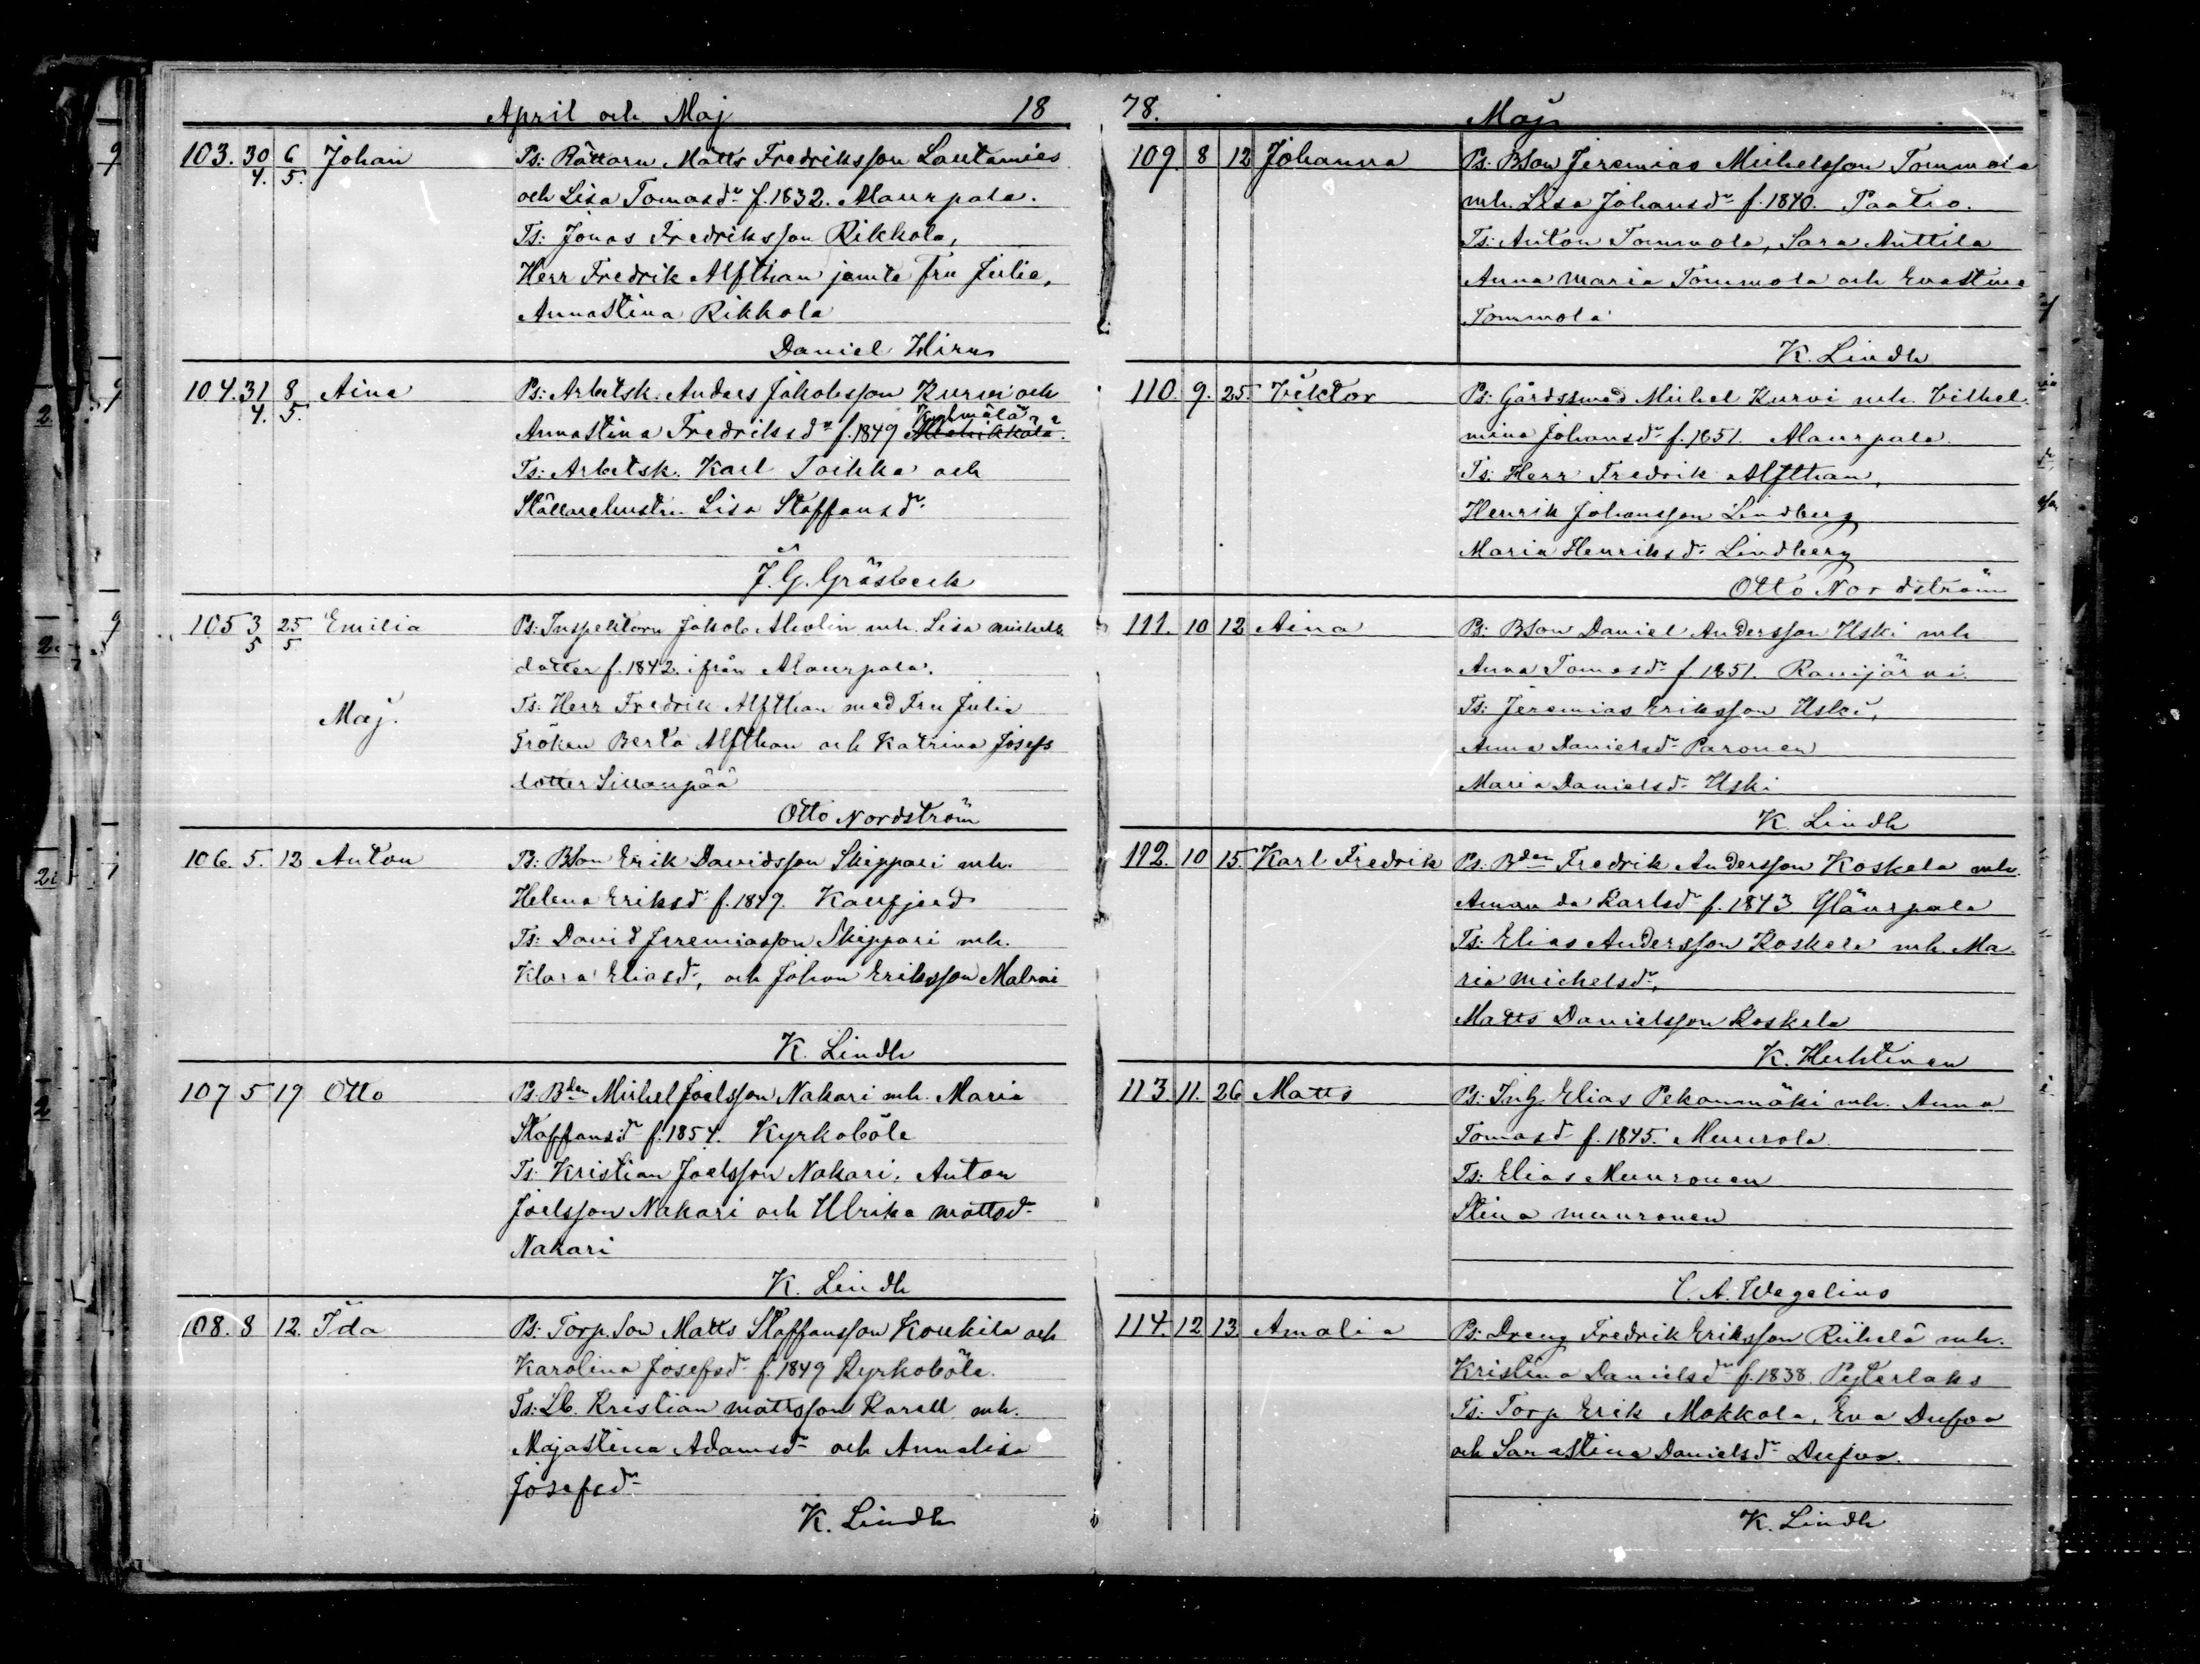 April och Maj 18
103. 30/4. 6/5. Johan Ps: Rättarn Matts Fredriksson Lautamies
och Lisa Tomasdr f. 1832. Alaurpala.
Ts: Jonas Fredriksson Rikkola,
Herr Fredrik Alfthan jemte Fru Julia,
Annastina Rikkola
Daniel Hirn
104. 31/4. 8/5. Aina Ps: Arbetsk. Anders Jakobsson Kurvi och
Kylmälä
Annastina Fredriksdr f. 1849
Ts: Arbetsk. Karl Toikka och
Lisa Staffansdr
J. G. Gråsbeck
105 3/5 25/5 Emilia Ps: Inspektorn Jakob Aholin mh. Lisa Michels
dotter f. 1842. ifrån Alaurpala.
Maj. Ts: Herr Fredrik Alfthan med Fru Julia
Fröken Berta Alfthan och Katrina Josefs
dotter Sillanpää
Otto Nordström
106. 5. 12 Anton Ps: BSon Erik Davidsson Skippari mh.
Helena Eriksdr f. 1849.
Ts: David Jeremiasson Skippari mh.
Klara Eliasdr, och Johan Eriksson
K. Lindh
107 5 19 Otto Ps: Bden Michel Joelsson Nakari mh. Maria
Staffansdr f. 1854. Kyrkoböle
Ts: Kristian Joelsson Nakari, Anton
Joelsson Nakari och Ulrika Mattsdr
Nakari
K. Lindh
108. 8 12. Ida Ps: Torp.Son Matts Staffansson Koukila och
Karolina Josefsdr f. 1849 Kyrkoböle.
Ts: Lb. Kristian Mattsson Karell mh.
Majastina Adamsdr och Annalisa
Josefsdr
K. Lindh
78. Maj
109. 8 12 Johanna Ps: BSon Jeremias Michelsson Tommola
mh. Lisa Johansdr f. 1840. Paatio.
Ts: Anton Tommola, Sara Anttila
Anna Maria Tommola och Evastina
Tommola
K. Lindh
110. 9. 25. Viktor Ps: Gårdssmed Michel Kurvi mh. Vilhel
mina Johansdr f. 1851. Alaurpala.
Ts: Herr Fredrik Alfthan,
Henrik Johansson Lindberg
Maria Henriksdr Lindberg
Otto Nordström
111. 10 12 Aina Ps: BSon Daniel Andersson Uski mh
Anna Tomasdr f. 1851. Ravijärvi.
Ts: Jeremias Eriksson Uski,
Anna Danielsdr Paronen
Maria Danielsdr Uski
K. Lindh
112. 10 15. Karl Fredrik Ps: Bden Fredrik Andersson Koskela mh.
Amanda Karlsdr f. 1843 Yläurpala
Ts: Elias Andersson Koskela mh. Ma
ria Michelsdr,
Matts Danielsson Koskela
K. Huhtinen
113. 11. 26 Matts Ps: Inh. Elias Pekanmäki mh. Anna
Tomasdr f. 1845. Muurola.
Ts: Elias Muuronen
Stina Muuronen
C. A. Wegelius
114. 12 13. Amalia Ps: Dreng Fredrik Eriksson Riihelä mh.
Kristina Danielsdr f. 1838. Pyterlaks
Ts: Torp Erik Mokkala, Eva Dufva
och Sarastina Danielsdr Dufva.
K. Lindh